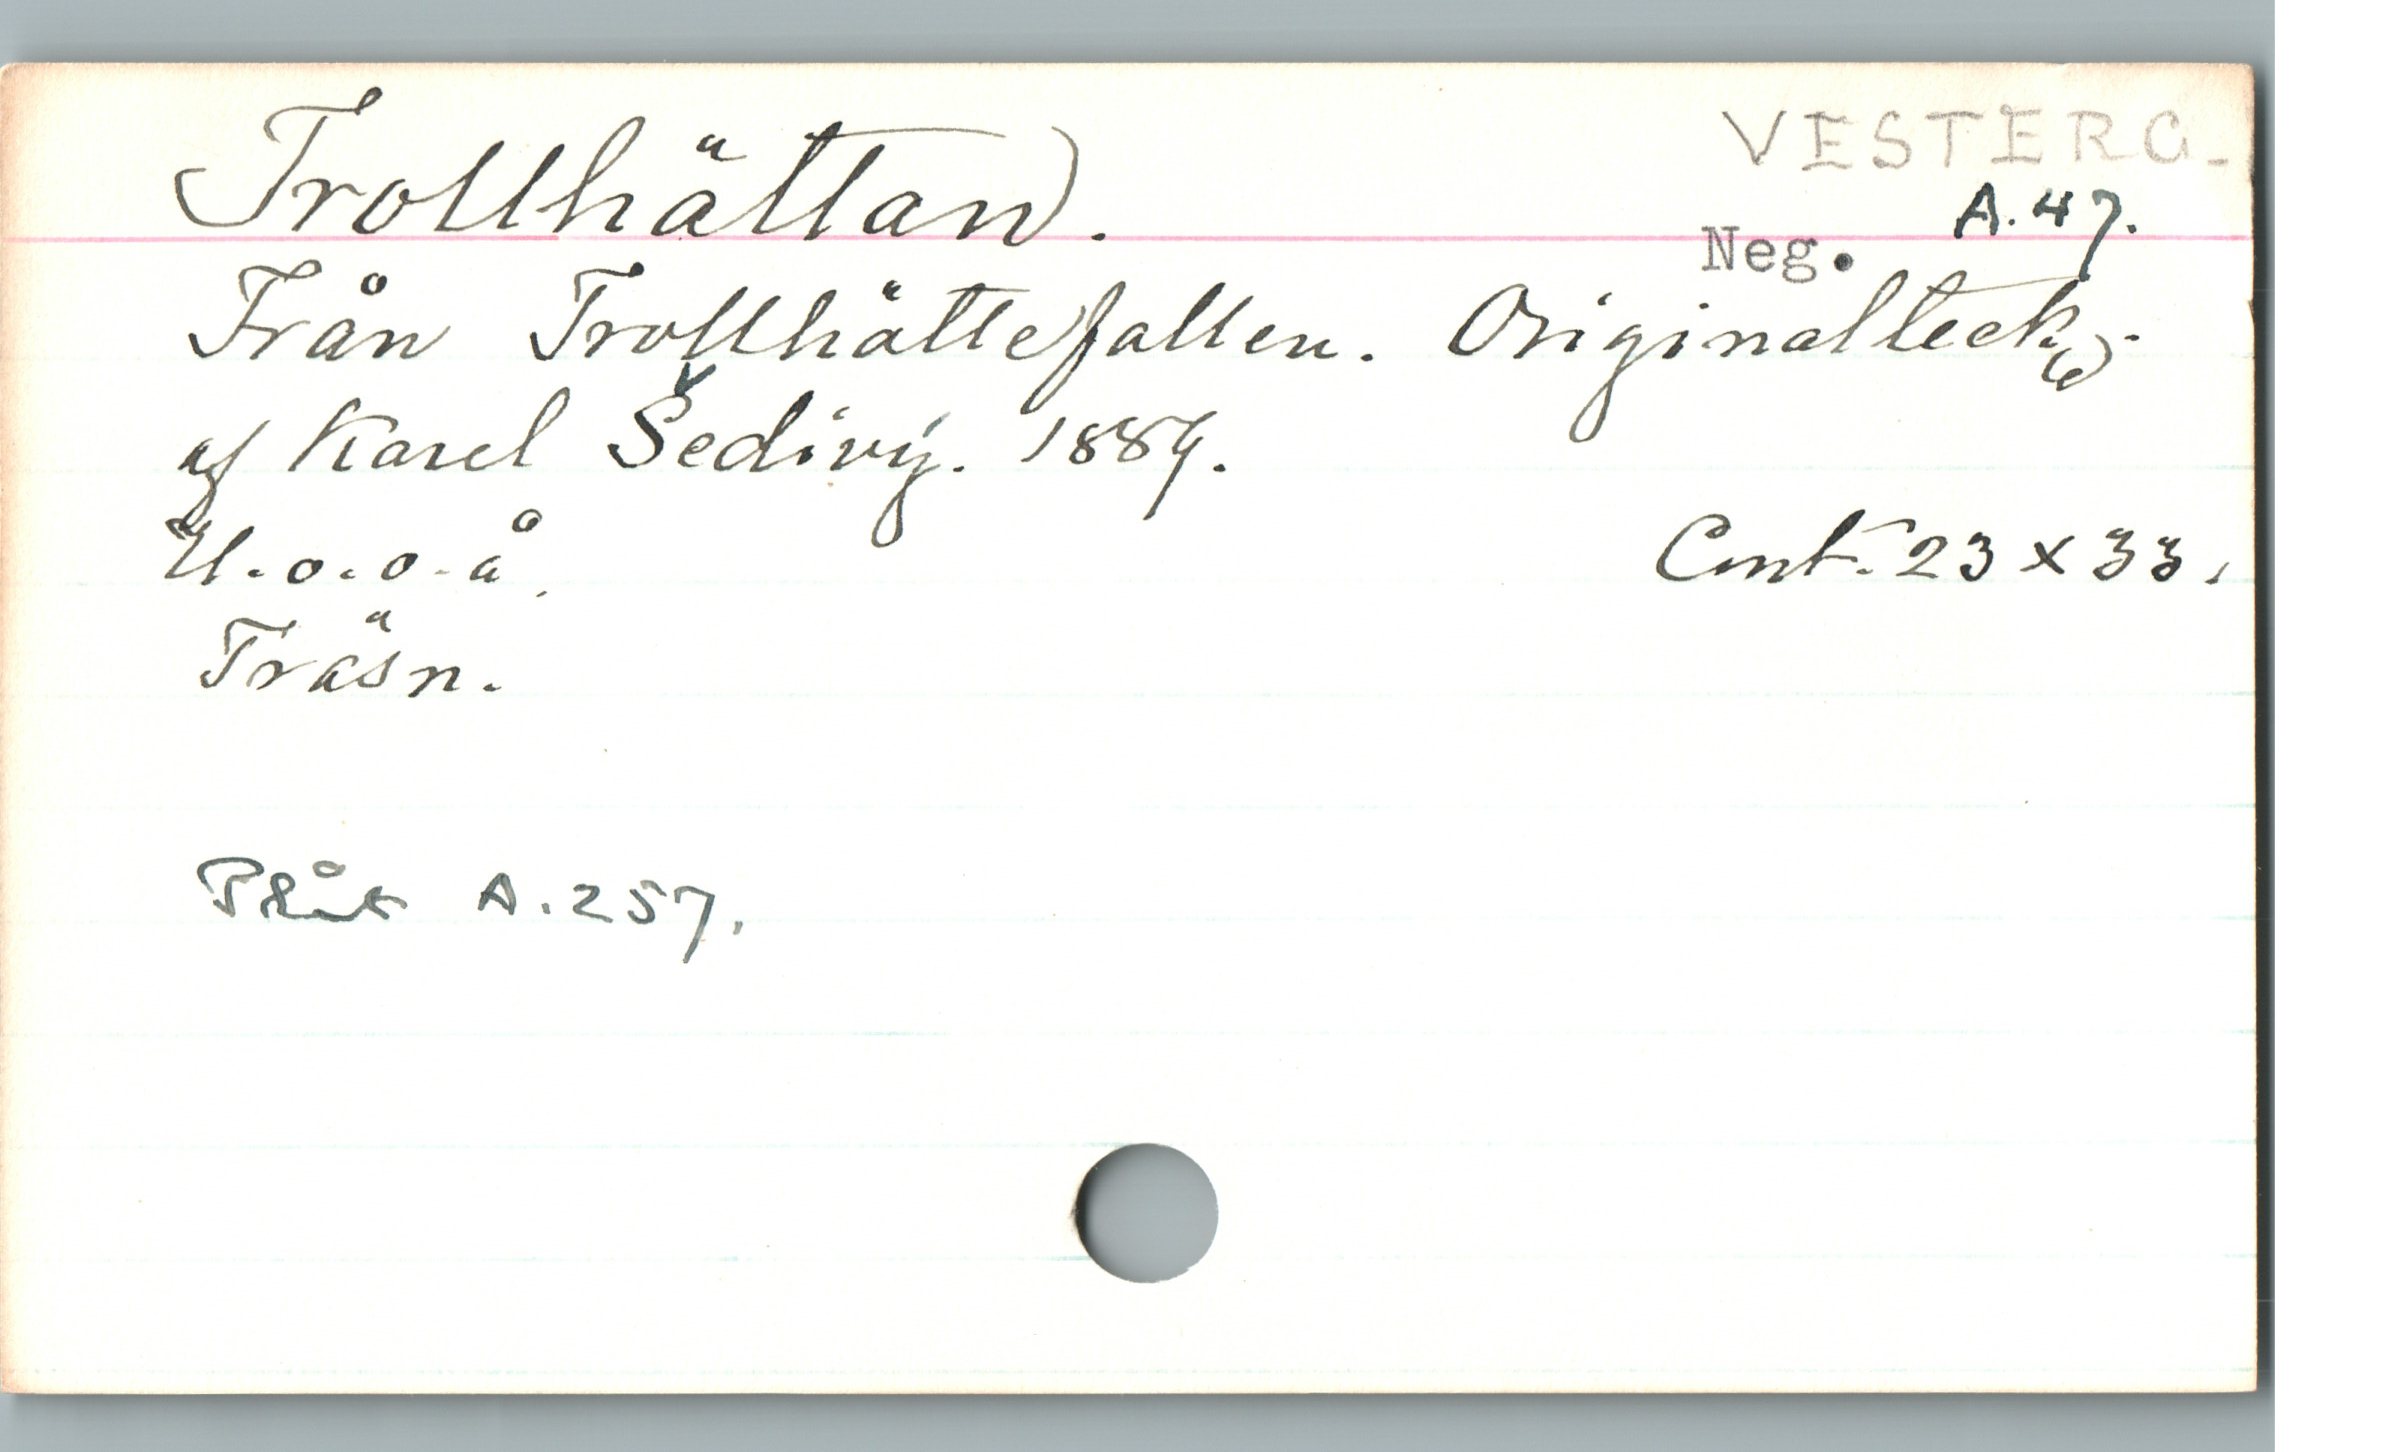 VESTERG.
Trollhättan.
Neg. A.47.
Från Trollhättefallen. Originalteckn.
af Karel Šedivý. 1887.
U.o.o.å.
Cmt. 23 x 33.
Träsn.
Plåt A.257.